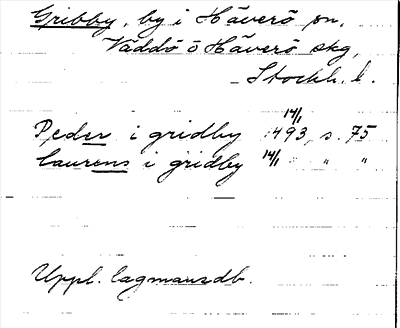 Gribby, by i Häverö sn,
Väddö o Häverö skg,
Stockh. l.
Peder i gridby 14/1 1493, s. 75
laurens i gridby 14/1 " "
Uppl. lagmansdb.